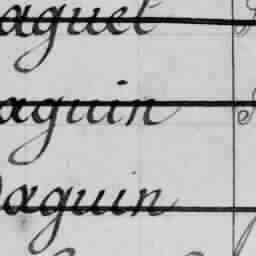 aguet
aguin
aguin